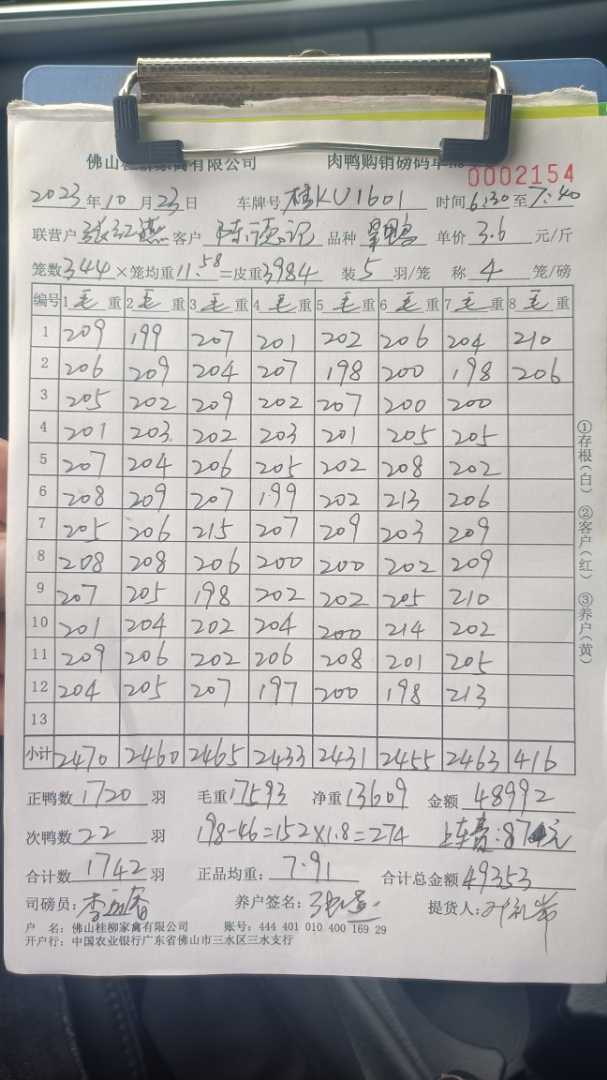 佛山桂柳家禽有限公司 肉鸭购销磅码单 0002154
2023年10月23日 车牌号 桂KU1601 时间 6:30至7:40
联营户 客户 品种 单价 3.6 元/斤
笼数344×笼均重11.58=皮重3984 装5羽/笼 称4笼/磅
编号 1毛重 2毛重 3毛重 4毛重 5毛重 6毛重 7毛重 8毛重
1 209 199 207 201 202 206 204 210
2 206 209 204 207 198 200 198 206
3 205 202 209 202 207 200 200
4 201 203 202 203 201 205 205
5 207 204 206 205 202 208 202
6 208 209 207 199 202 213 206
7 205 206 215 207 209 203 209
8 208 208 206 200 200 202 209
9 207 205 198 202 202 205 210
10 201 204 202 204 200 214 202
11 209 206 202 206 208 201 205
12 204 205 207 197 200 198 213
13
小计 2470 2460 2465 2433 2431 2455 2463 416
正鸭数 1720 羽 毛重 17593 净重 13609 金额 48992
次鸭数 22 羽 198-46=152×1.8=274 上车费:87元
合计数 1742 羽 正品均重: 7.91 合计总金额 49353
司磅员: 养户签名: 提货人:
户 名: 佛山桂柳家禽有限公司 账号: 444 401 010 400 169 29
开户行: 中国农业银行广东省佛山市三水区三水支行
①存根(白) ②客户(红) ③养户(黄)